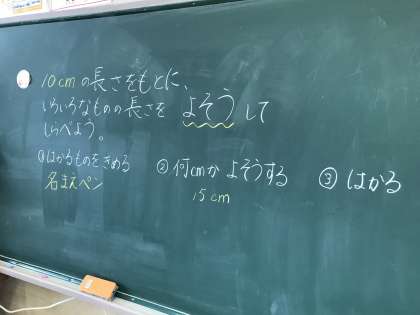 10cmの長さをもとに、
いろいろなものの長さを よそうして
しらべよう。
①はかるものをきめる
名まえペン
②何cmか よそうする
15cm
③はかる